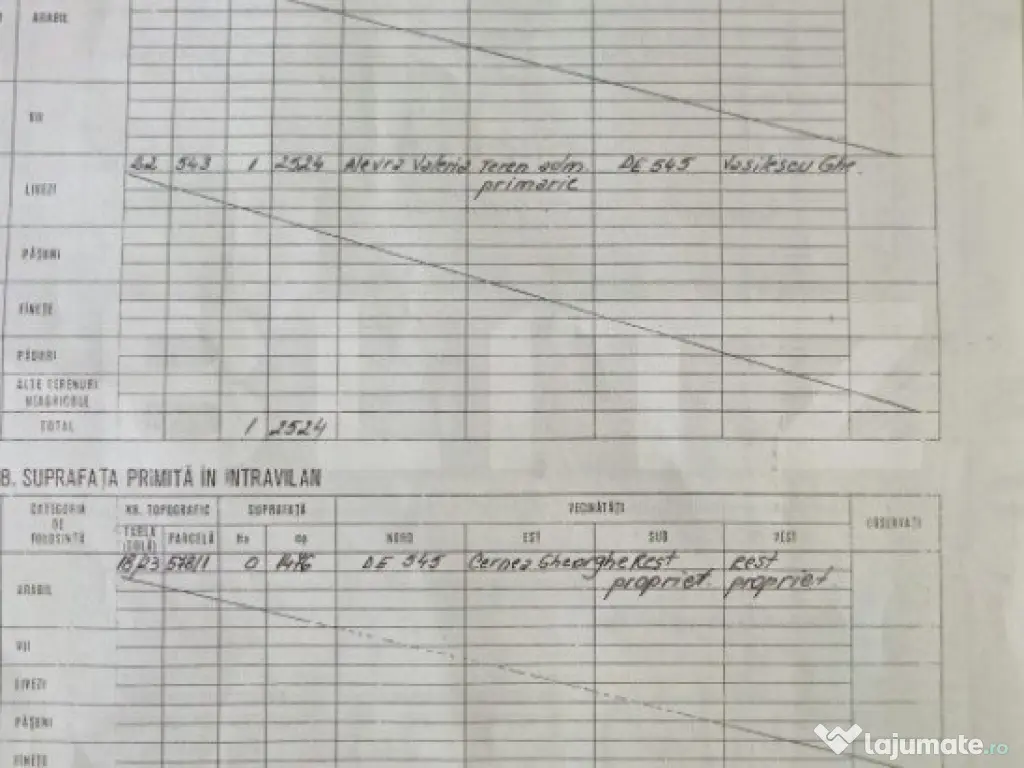 ARABIL
VII
22 543 1 2524 Nevra Valeria Teren adm. DE 545 Vasilescu Ghe.
primarie
LIVEZI
PĂŞUNI
FÎNEŢE
PĂDURI
ALTE TERENURI
NEAGRICOLE
TOTAL 1 2524
B. SUPRAFAŢA PRIMITĂ ÎN INTRAVILAN
CATEGORIA DE FOLOSINŢĂ NR. TOPOGRAFIC SUPRAFAŢĂ VECINĂTĂŢI OBSERVAŢII
TARLA (SOLA) PARCELĂ Ha mp NORD EST SUD VEST
18/23 578/1 0 1476 DE 545 Cernea Gheorghe Rest Rest
propriet. propriet.
ARABIL
VII
LIVEZI
PĂŞUNI
FÎNEŢE
lajumate.ro